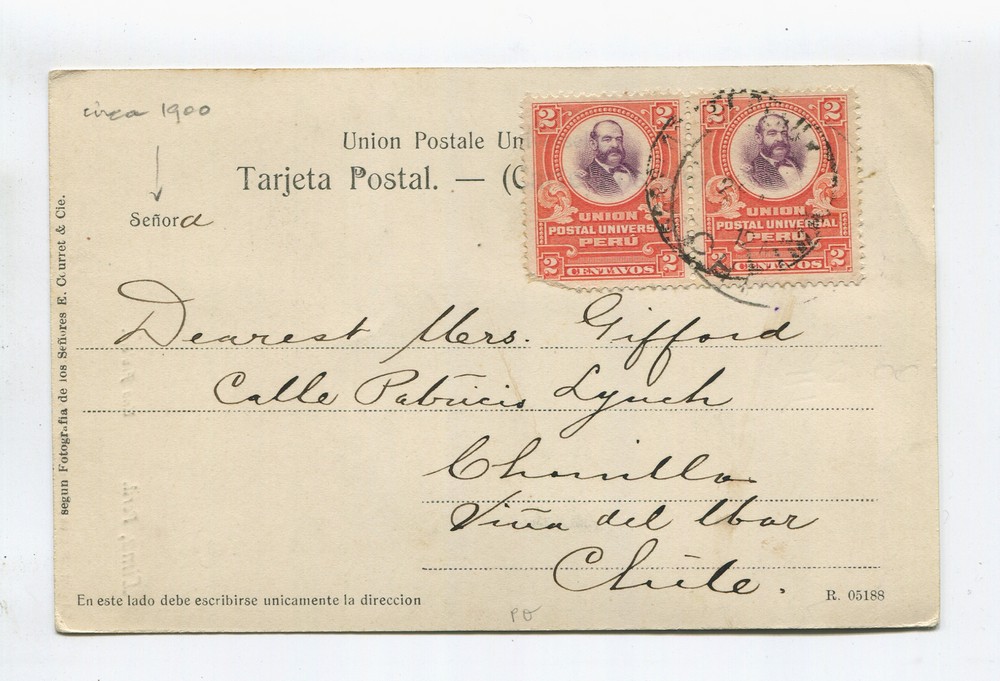 circa 1900
Union Postale Un
Tarjeta Postal. — (C
Señora
2 2
UNION
POSTAL UNIVERSAL
PERÚ
2 CENTAVOS 2
2 2
UNION
POSTAL UNIVERSAL
PERÚ
2 CENTAVOS 2
Dearest Mrs. Gifford
Calle Patricio Lynch
Viña del Mar
Chile.
segun Fotografia de los Señores E. Courret & Cie.
En este lado debe escribirse unicamente la direccion
R. 05188